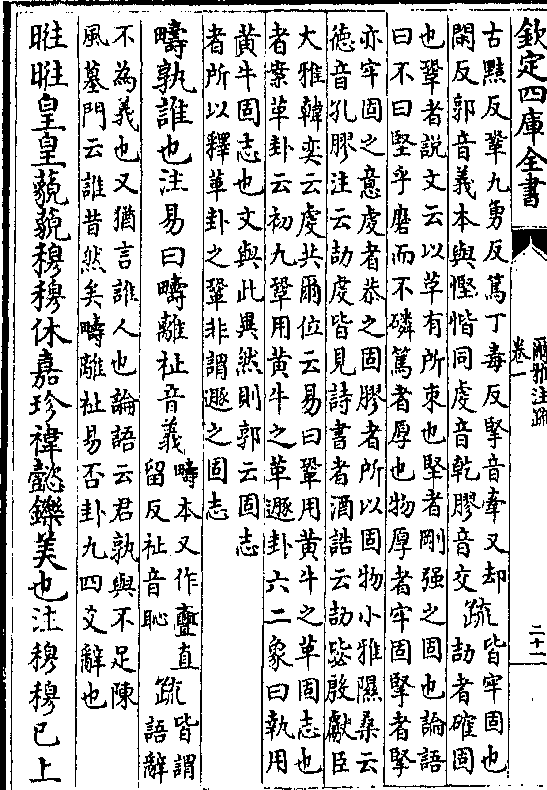 欽定四庫全書
爾雅注疏
卷一
二十一
古黠反鞏九勇反篤丁毒反掔音牽又却
閑反郭音義本與慳悋同虔音乾膠音交
疏
皆牢固也
劼者確固
也鞏者説文云以草有所束也堅者剛强之固也論語
曰不曰堅乎磨而不磷篤者厚也物厚者牢固掔者掔
亦牢固之意虔者恭之固膠者所以固物小雅隰桑云
徳音孔膠注云劼虔皆見詩書者酒誥云劼毖殷獻臣
大雅韓奕云虔共爾位云易曰鞏用黄牛之革固志也
者案革卦云初九鞏用黄牛之革遯卦六二象曰執用
黄牛固志也文與此異然則郭云固志
者所以釋革卦之鞏非謂遯之固志
疇孰誰也注易曰疇離祉音義
疇本又作𠷎直
留反祉音恥
疏
皆謂
語辭
不為義也又猶言誰人也論語云君孰與不足陳
風墓門云誰昔然矣疇離祉易否卦九四爻辭也
暀暀皇皇藐藐穆穆休嘉珍禕懿鑠美也注穆穆已上